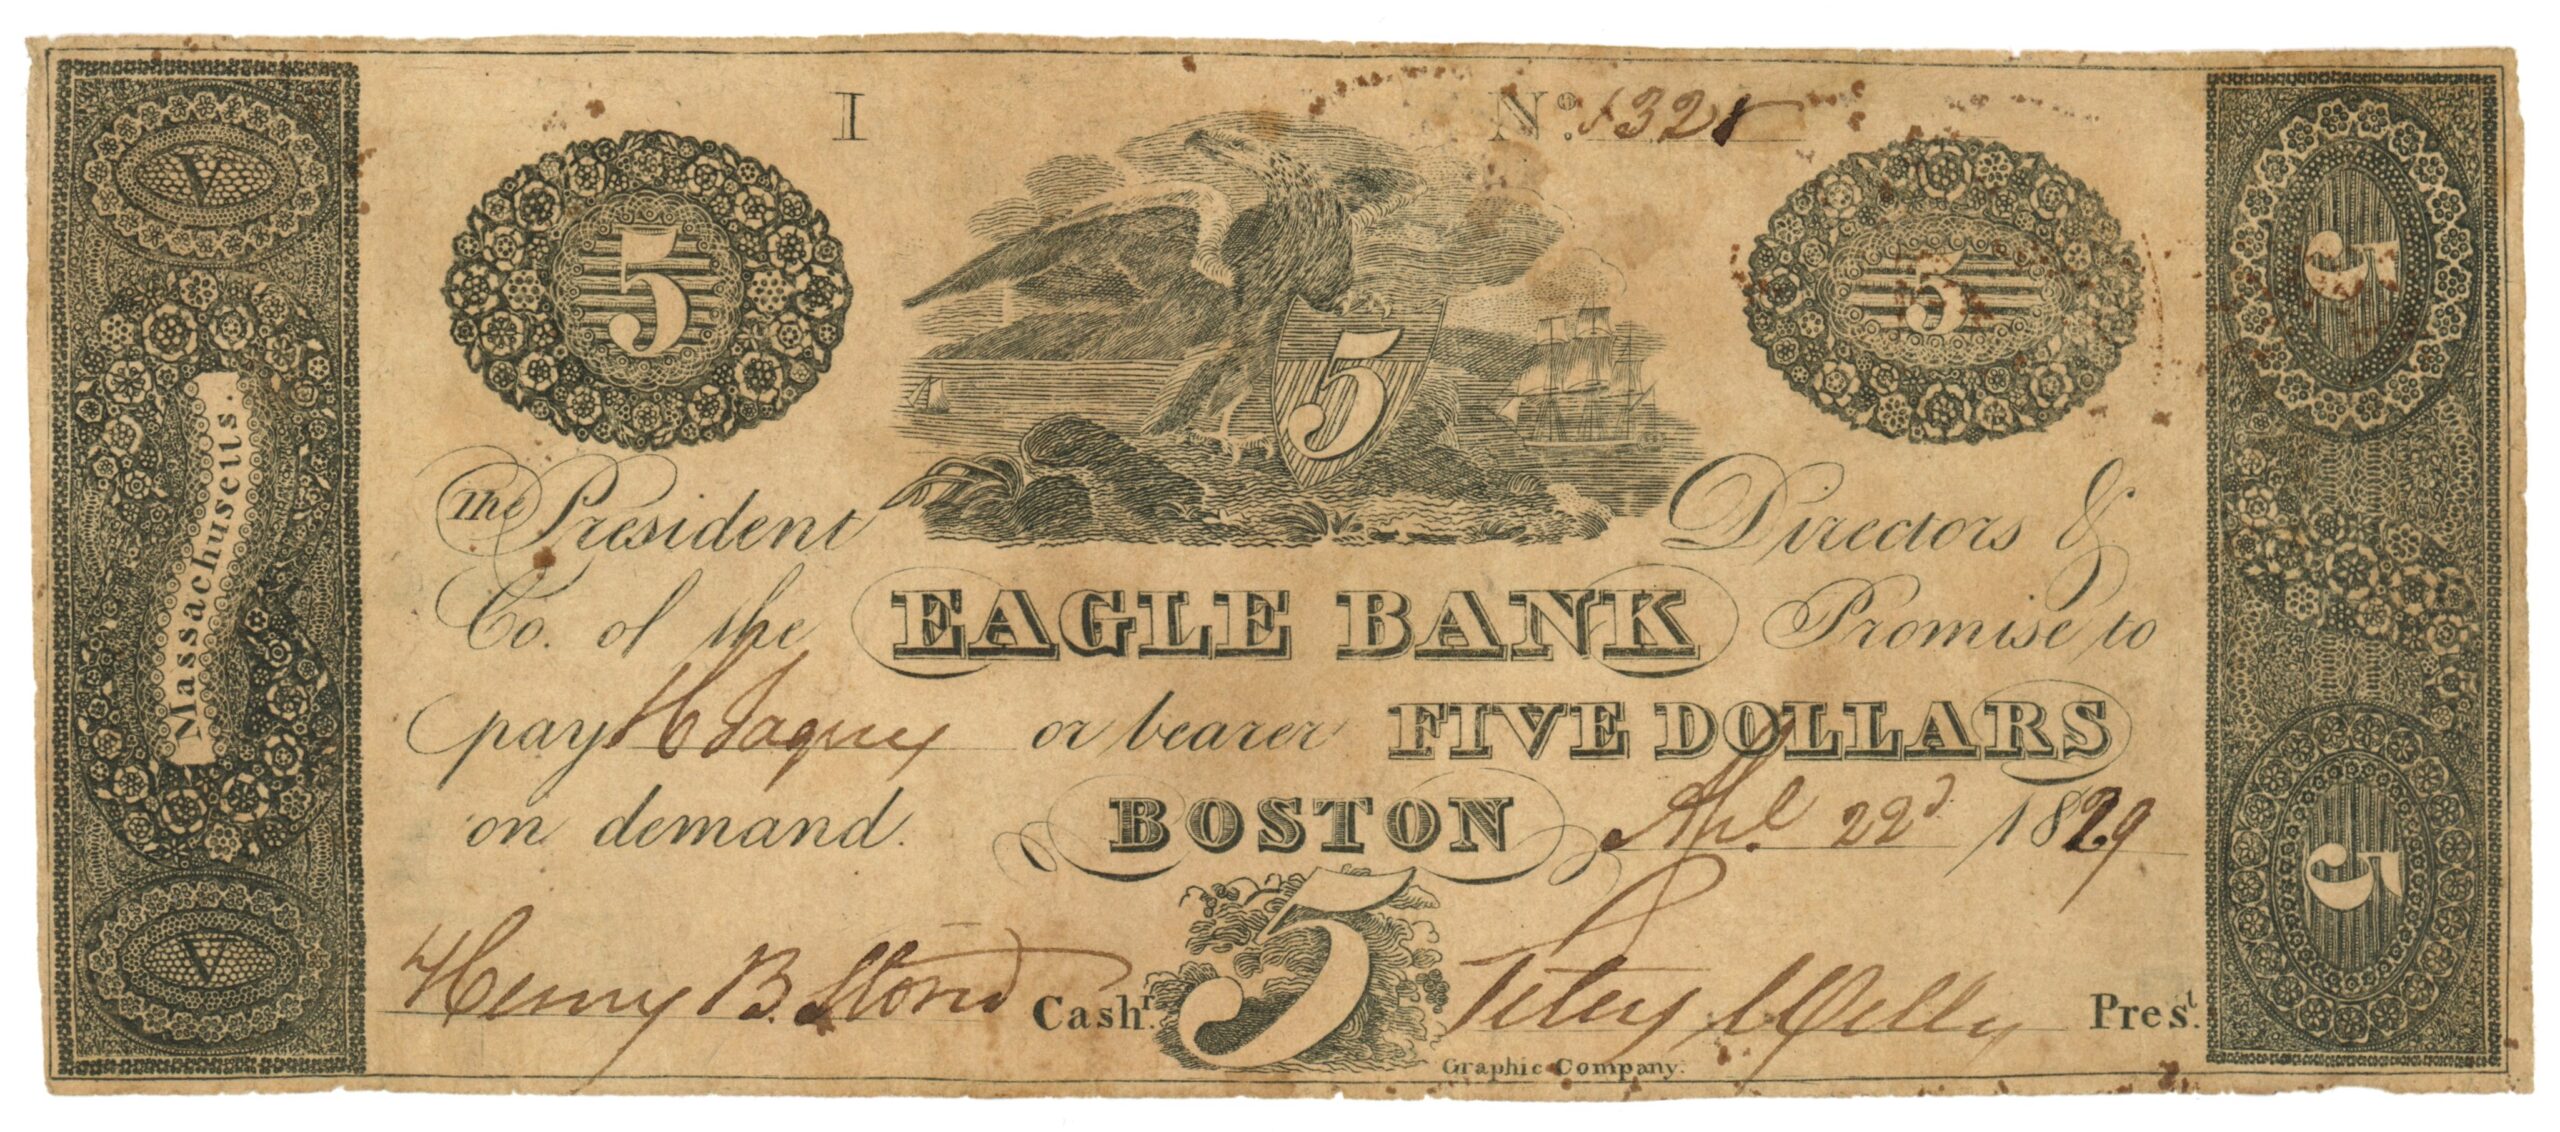 I Nº. 1321
5 5 5
V Massachusetts. V
5 5
The President Directors &
Co. of the EAGLE BANK Promise to
pay H Jaquiy or bearer FIVE DOLLARS
on demand. BOSTON Apl. 22d 1829
Henry B. Cashr. 5 Prest.
Graphic Company.